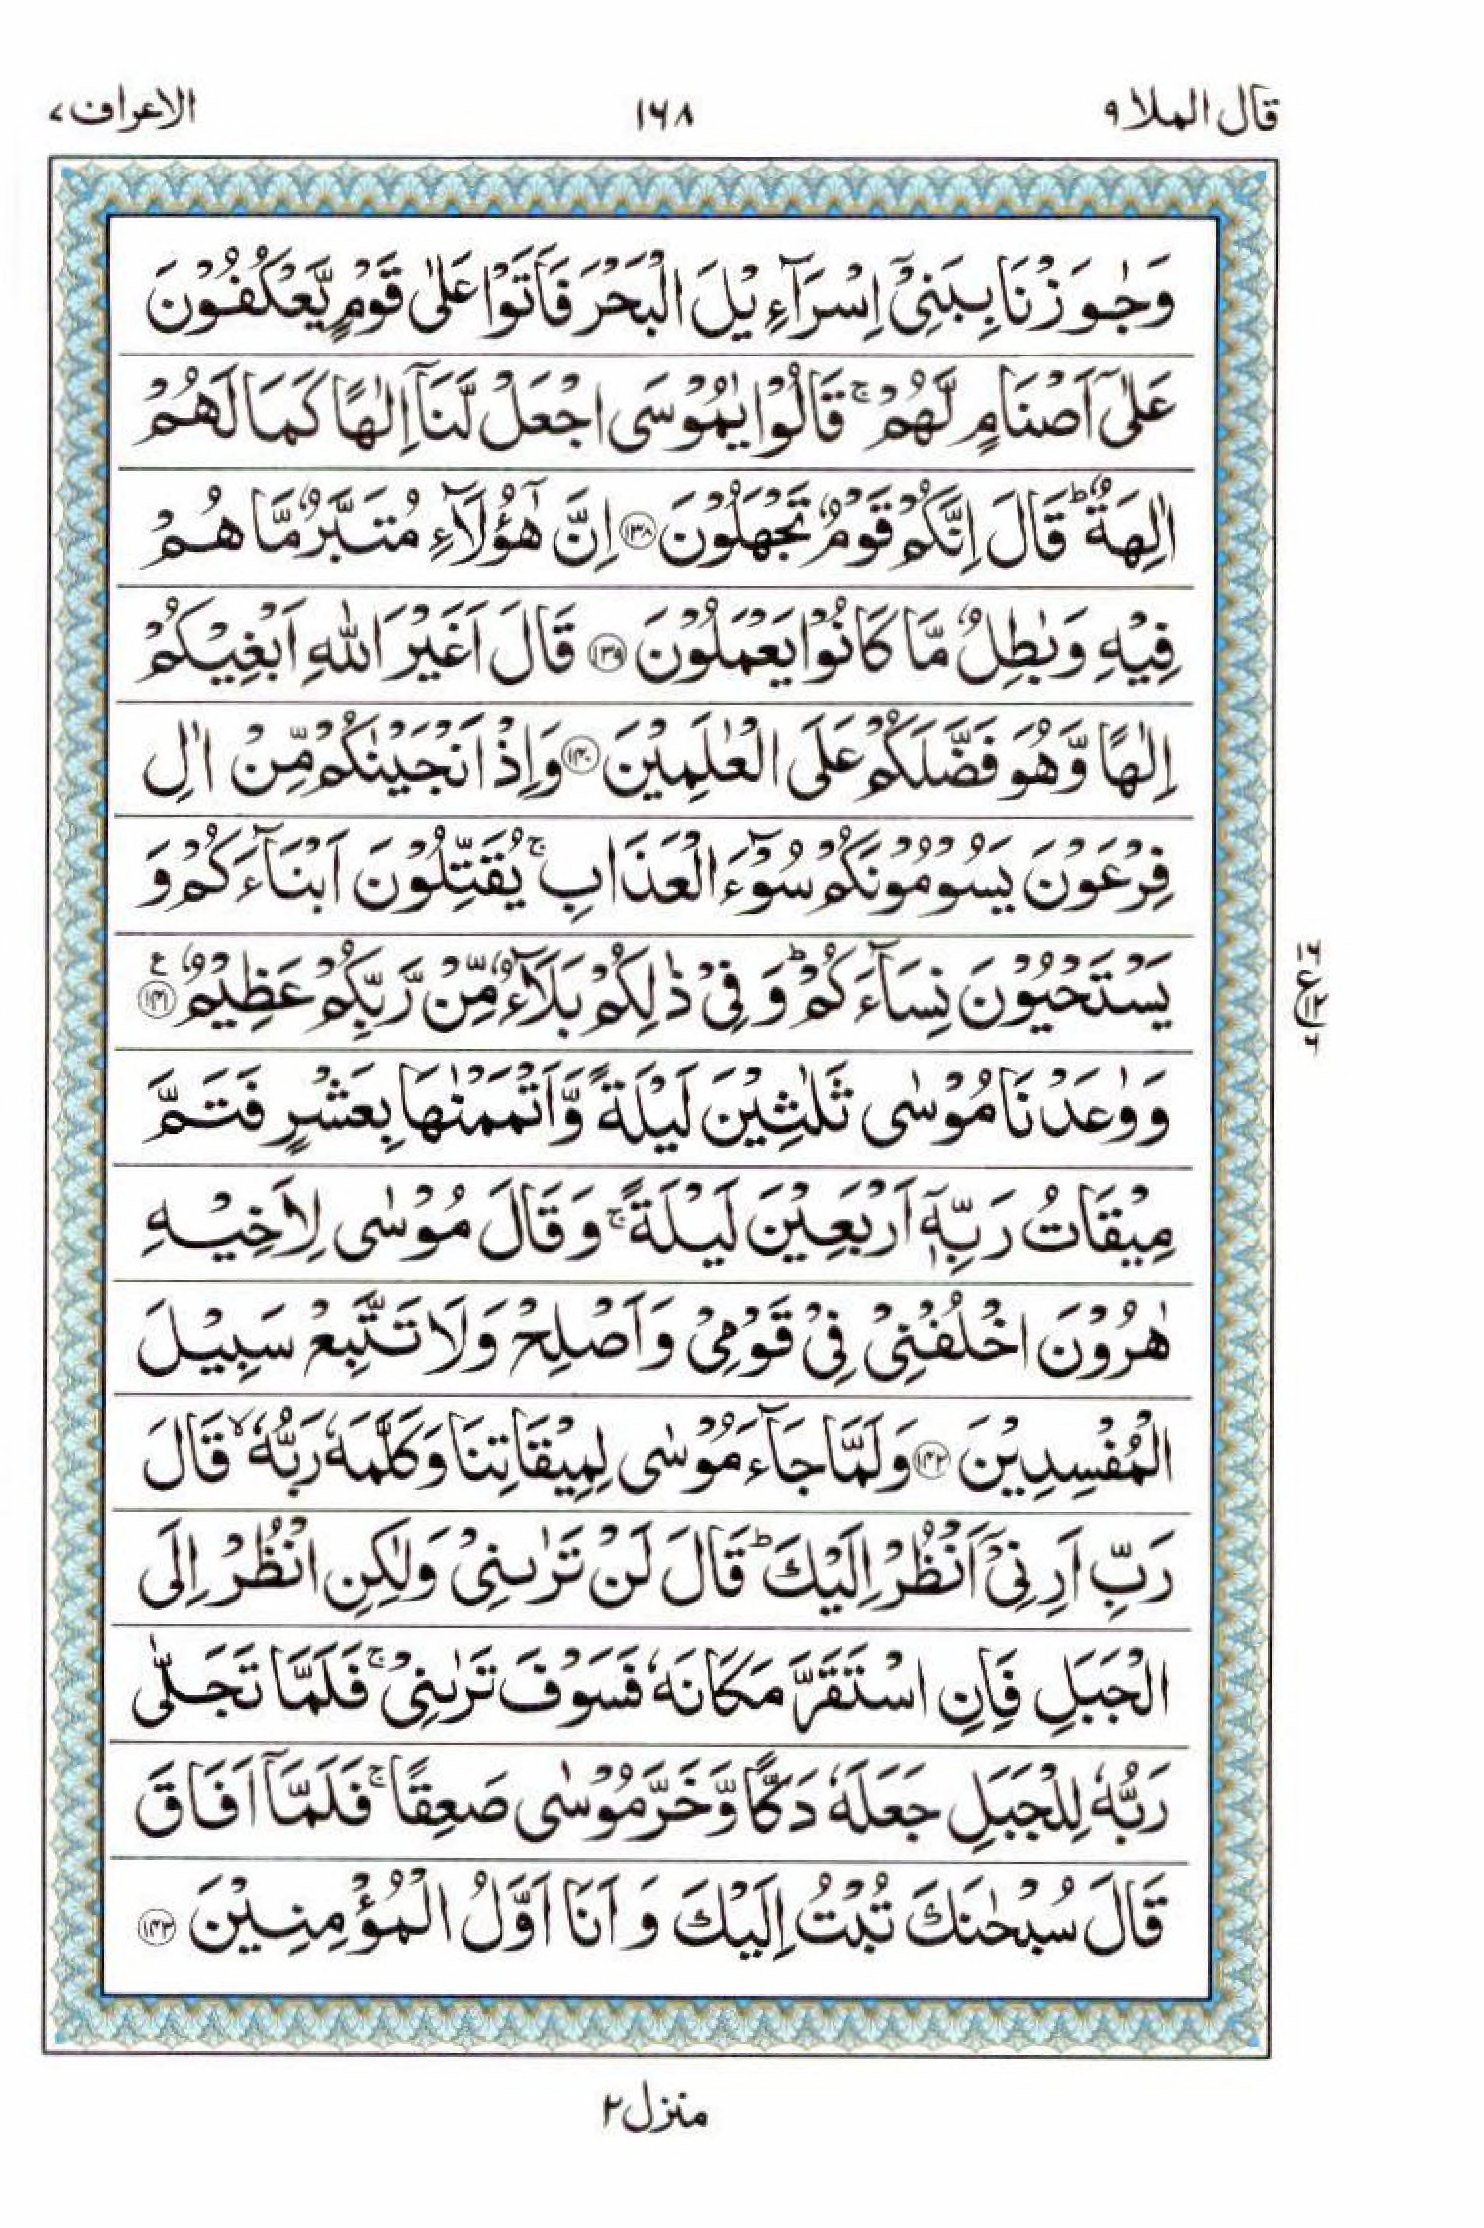 قال الملا ٩
١٦٨
الاعراف ٧
وَجٰوَزْنَا بِبَنِیْۤ اِسْرَآءِیْلَ الْبَحْرَ فَاَتَوْا عَلٰی قَوْمٍ یَّعْكُفُوْنَ
عَلٰۤی اَصْنَامٍ لَّهُمْ ۚ قَالُوْا یٰمُوْسَی اجْعَلْ لَّنَاۤ اِلٰهًا كَمَا لَهُمْ
اٰلِهَةٌ ؕ قَالَ اِنَّكُمْ قَوْمٌ تَجْهَلُوْنَ ﴿۱۳۸﴾ اِنَّ هٰۤؤُلَآءِ مُتَبَّرٌ مَّا هُمْ
فِیْهِ وَبٰطِلٌ مَّا كَانُوْا یَعْمَلُوْنَ ﴿۱۳۹﴾ قَالَ اَغَیْرَ اللّٰهِ اَبْغِیْكُمْ
اِلٰهًا وَّهُوَ فَضَّلَكُمْ عَلَی الْعٰلَمِیْنَ ﴿۱۴۰﴾ وَاِذْ اَنْجَیْنٰكُمْ مِّنْ اٰلِ
فِرْعَوْنَ یَسُوْمُوْنَكُمْ سُوْٓءَ الْعَذَابِ ۚ یُقَتِّلُوْنَ اَبْنَآءَكُمْ وَ
یَسْتَحْیُوْنَ نِسَآءَكُمْ ؕ وَ فِیْ ذٰلِكُمْ بَلَآءٌ مِّنْ رَّبِّكُمْ عَظِیْمٌ ﴿۱۴۱﴾ ع
وَوٰعَدْنَا مُوْسٰی ثَلٰثِیْنَ لَیْلَةً وَّاَتْمَمْنٰهَا بِعَشْرٍ فَتَمَّ
مِیْقَاتُ رَبِّهٖۤ اَرْبَعِیْنَ لَیْلَةً ۚ وَ قَالَ مُوْسٰی لِاَخِیْهِ
هٰرُوْنَ اخْلُفْنِیْ فِیْ قَوْمِیْ وَاَصْلِحْ وَلَا تَتَّبِعْ سَبِیْلَ
الْمُفْسِدِیْنَ ﴿۱۴۲﴾ وَلَمَّا جَآءَ مُوْسٰی لِمِیْقَاتِنَا وَكَلَّمَهٗ رَبُّهٗ ۙ قَالَ
رَبِّ اَرِنِیْۤ اَنْظُرْ اِلَیْكَ ؕ قَالَ لَنْ تَرٰىنِیْ وَلٰكِنِ انْظُرْ اِلَی
الْجَبَلِ فَاِنِ اسْتَقَرَّ مَكَانَهٗ فَسَوْفَ تَرٰىنِیْ ۚ فَلَمَّا تَجَلّٰی
رَبُّهٗ لِلْجَبَلِ جَعَلَهٗ دَكًّا وَّخَرَّ مُوْسٰی صَعِقًا ۚ فَلَمَّاۤ اَفَاقَ
قَالَ سُبْحٰنَكَ تُبْتُ اِلَیْكَ وَ اَنَا اَوَّلُ الْمُؤْمِنِیْنَ ﴿۱۴۳﴾
منزل ٢